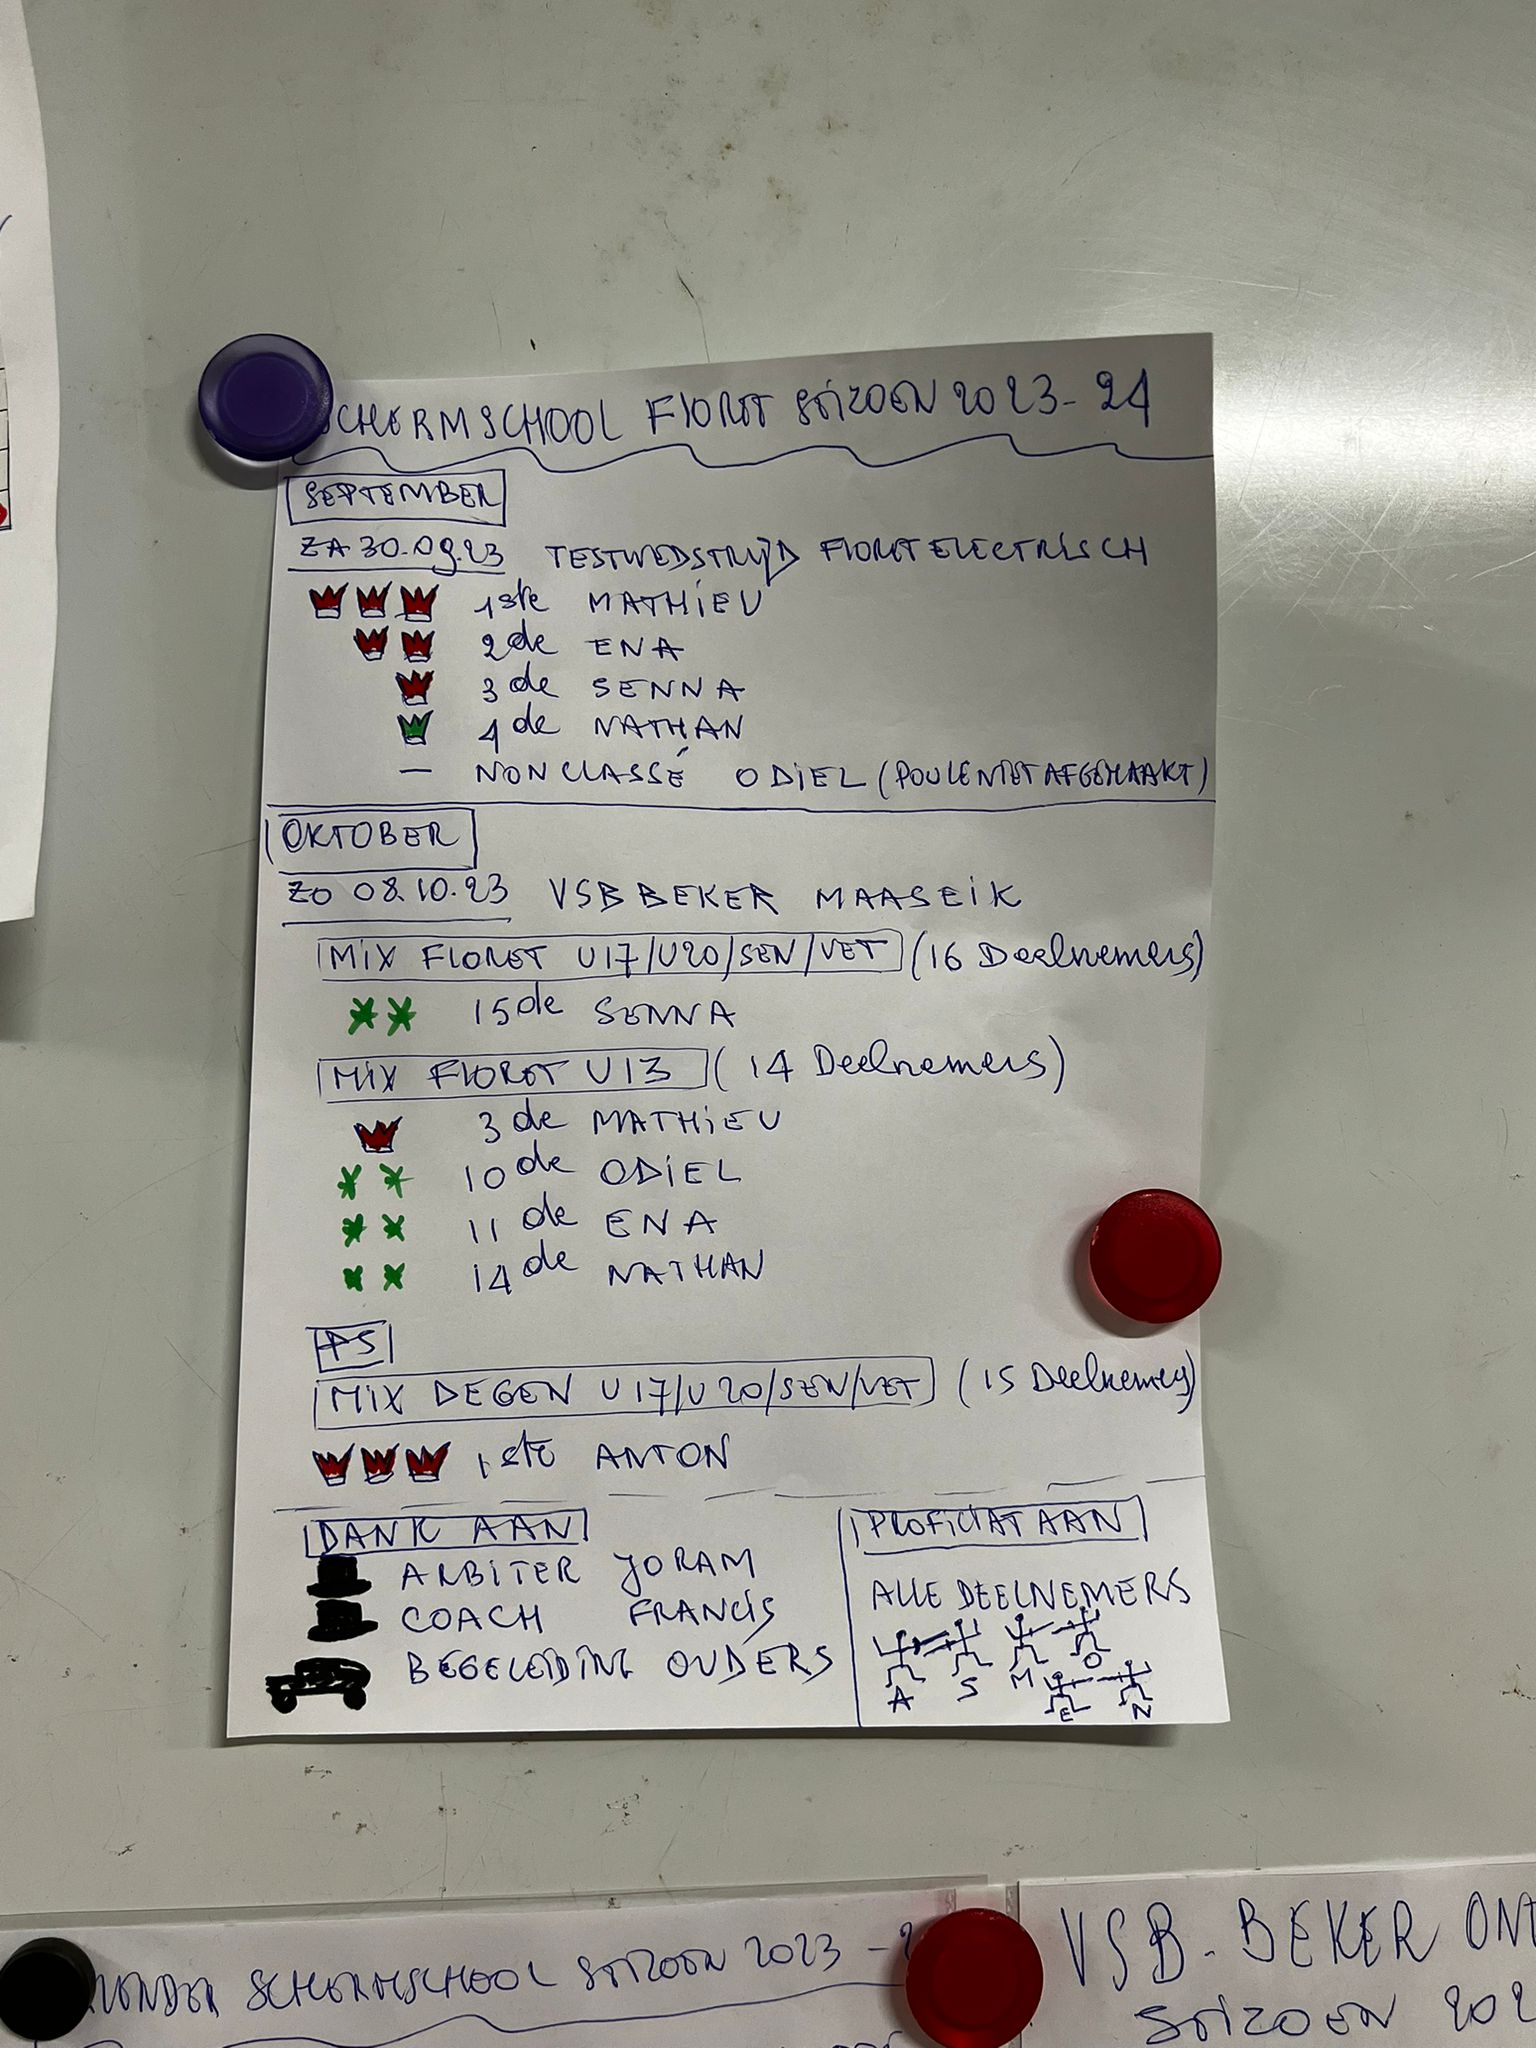 SCHERMSCHOOL FLORET SEIZOEN 2023-24
SEPTEMBER
ZA 30.09.23 TESTWEDSTRIJD FLORET ELECTRISCH
1ste MATHIEU
2de ENA
3de SENNA
4de NATHAN
— NON CLASSÉ ODIEL (POULE NIET AFGEMAAKT)
OKTOBER
ZO 08.10.23 VSB BEKER MAASEIK
MIX FLORET U17/U20/SEN/VET (16 Deelnemers)
15de SENNA
MIX FLORET U13 (14 Deelnemers)
3de MATHIEU
10de ODIEL
11de ENA
14de NATHAN
PS
MIX DEGEN U17/U20/SEN/VET (15 Deelnemers)
1ste ANTON
DANK AAN
ARBITER JORAM
COACH FRANCIS
BEGELEIDING OUDERS
PROFICIAT AAN
ALLE DEELNEMERS
A S M O
E N
SCHERMSCHOOL SEIZOEN 2023-
VSB-BEKER
SEIZOEN 202